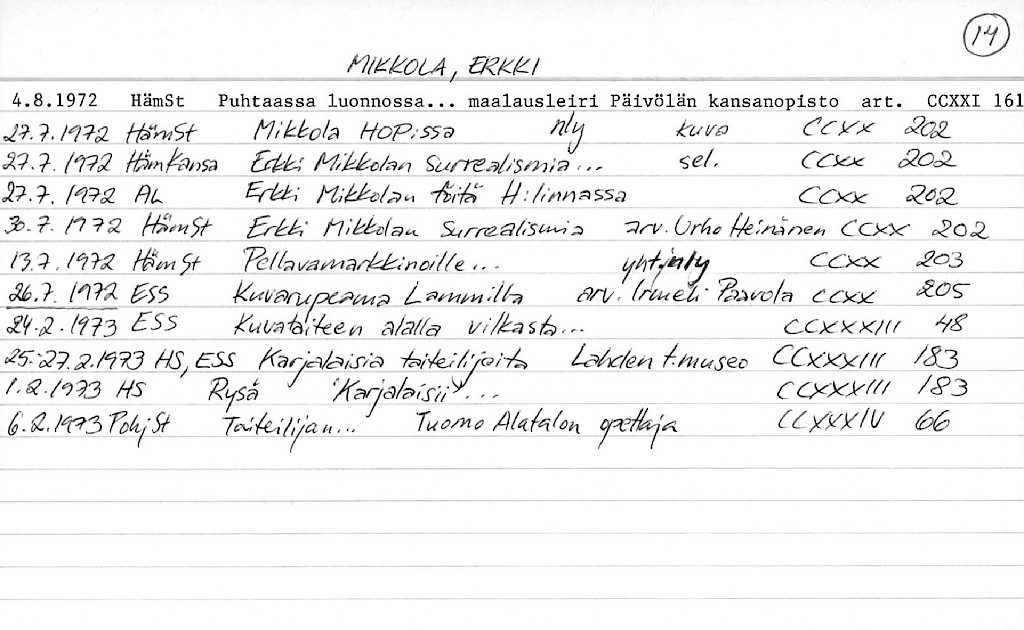 14
MIKKOLA, ERKKI
4.8.1972 HämSt Puhtaassa luonnossa... maalausleiri Päivölän kansanopisto art. CCXXI 161
27.7.1972 HämSt Mikkola HOP:ssa nly kuva CCXX 202
27.7.1972 HämKansa Erkki Mikkolan Surrealismia... sel. CCXX 202
27.7.1972 AL Erkki Mikkolan töitä H:linnassa CCXX 202
30.7.1972 HämSt Erkki Mikkolan Surrealismia arv. Urho Heinänen CCXX 202
13.7.1972 HämSt Pellavamarkkinoille... yht.näly CCXX 203
26.7.1972 ESS Kuvarupeama Lammilla arv. Irmeli Paavola CCXX 205
24.2.1973 ESS Kuvataiteen alalla vilkasta... CCXXXIII 48
25.-27.2.1973 HS, ESS Karjalaisia taiteilijoita Lahden t.museo CCXXXIII 183
1.2.1973 HS Rysä "Karjalaisii"... CCXXXIII 183
6.2.1973 PohjSt Taiteilijan... Tuomo Alatalon opettaja CCXXXIV 66